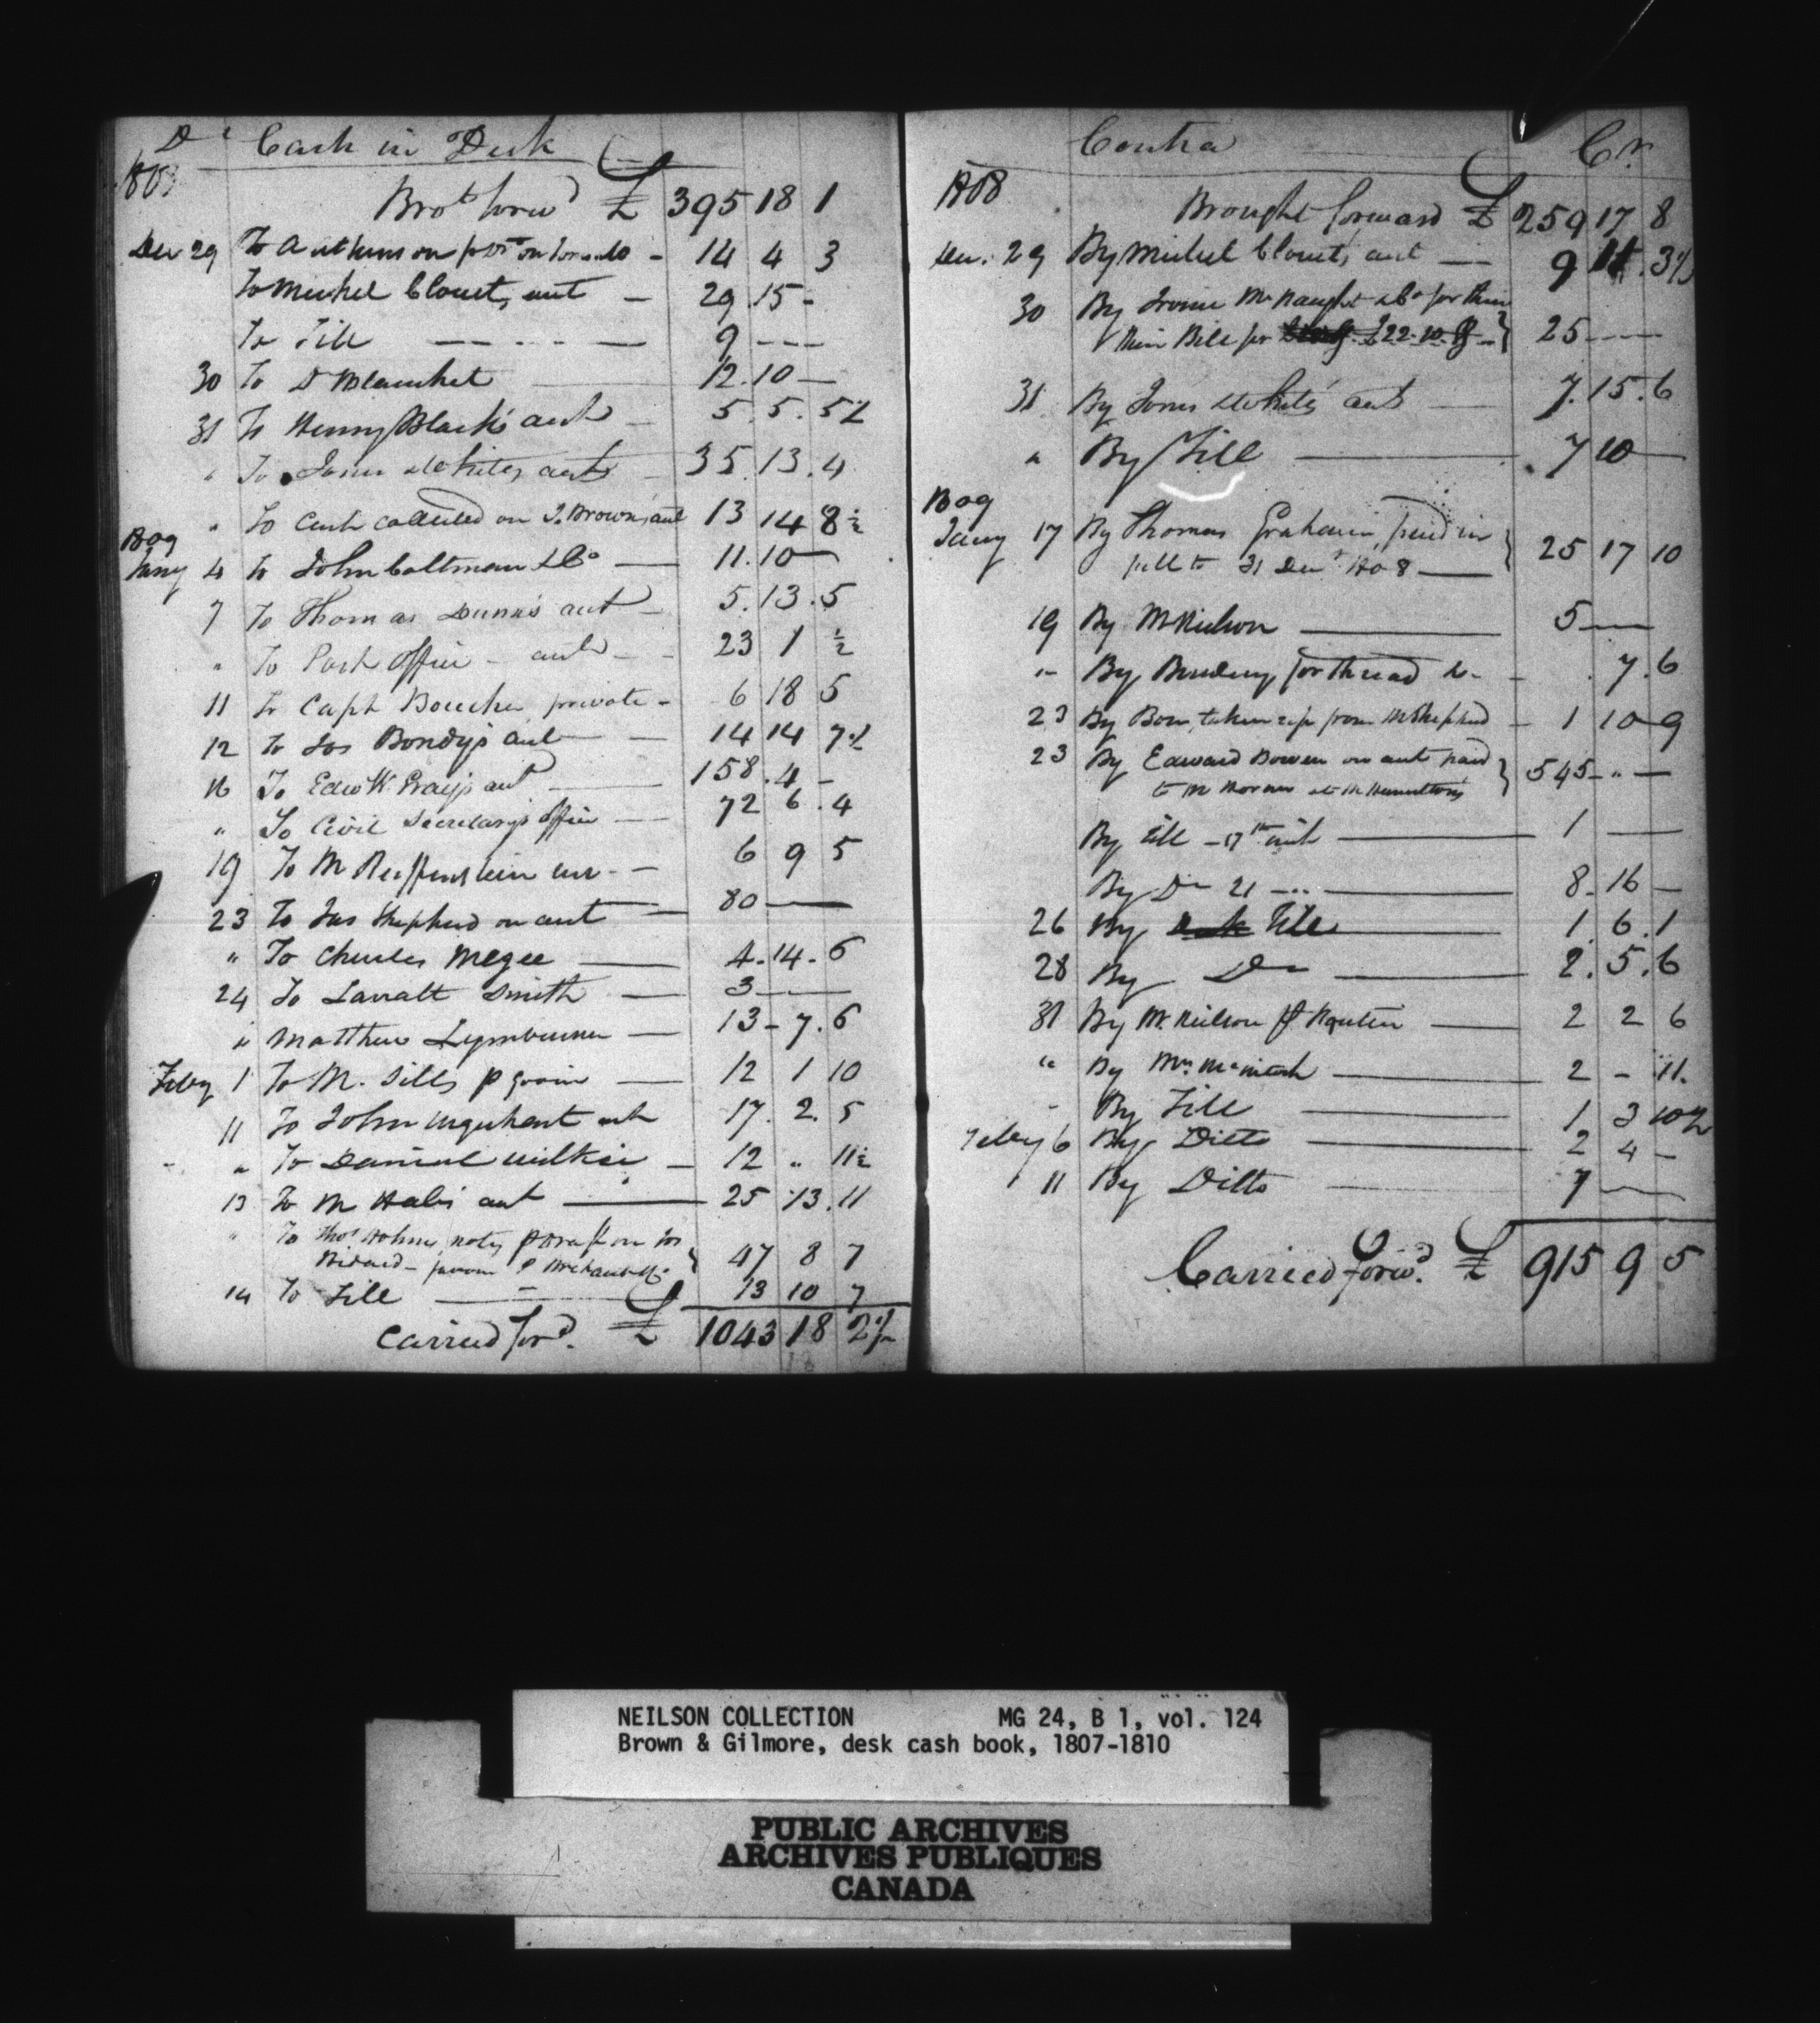 Dr Cash in Desk
1808
Brot forwd £ 395 18 1
Decr 29 To Antkinson 14 4 3
To Michel Clouet, acct 29.15 -
To Till 9 - - -
30 To D Blanchet 12.10 —
31 To Henry Black's acct 5.5.5½
" To Irvine White's acct 35.13.4
" To Cash collected on J. Brown's acct 13 14 8½
1809
Jany 4 To John Coltman & Co 11.10 —
7 To Thomas Dunn's acct 5.13.5
" To Post Office acct 23 1 ½
11 To Capt Bouchette private 6 18 5
12 To Jos Bondy's acct 14 14 7½
16 To Edwd W. Gray's acct 158.4 -
" To Civil Secretary's Office 72 6.4
19 To M Reiffenstein 6 9 5
23 To Jas Shepherd on acct 80 —
" To Charles Megee 4.14.6
24 To Larratt Smith 3 —
" Matthew Lymburner 13 - 7.6
Feby 1 To M. Sills 12 1 10
11 To John Urquhart acct 17.2.5
" To Daniel Wilkie 12 " 11½
13 To M Hale's acct 25 13.11
" To Thos
47 8 7
14 To Till 13 10 7
Carried ford. £ 1043 18 2½
Contra Cr.
1808
Brought forward £ 259 17 8
Decr. 29 By Michel Clouet, acct 9 11.3½
30 By Irvine McNaught & Co for
their Bill for £22.10 25 —
31 By Irvine White's acct 7.15.6
" By Till 7 10 —
1809
Jany 17 By Thomas Graham, paid in
full to 31 Decr 1808 25 17 10
19 By M Neilson 5 —
" By Bindery for thread &c 7.6
23 By taken up from M Shepherd 1 10 9
23 By Edward Bowen on acct paid
to M 545 - " —
By Till - 17th inst 1 —
By Do 21 - " 8 - 16 —
26 By Till 1.6.1
28 By Do 2.5.6
31 By M. Neilson 2 2 6
" By Mrs McIntosh 2 - 11.
- By Till 1 3 10½
Feby 6 By Ditto 2 4 -
11 By Ditto 7 —
Carried forwd. £ 915 9 5
NEILSON COLLECTION MG 24, B 1, vol. 124
Brown & Gilmore, desk cash book, 1807-1810
PUBLIC ARCHIVES
ARCHIVES PUBLIQUES
CANADA